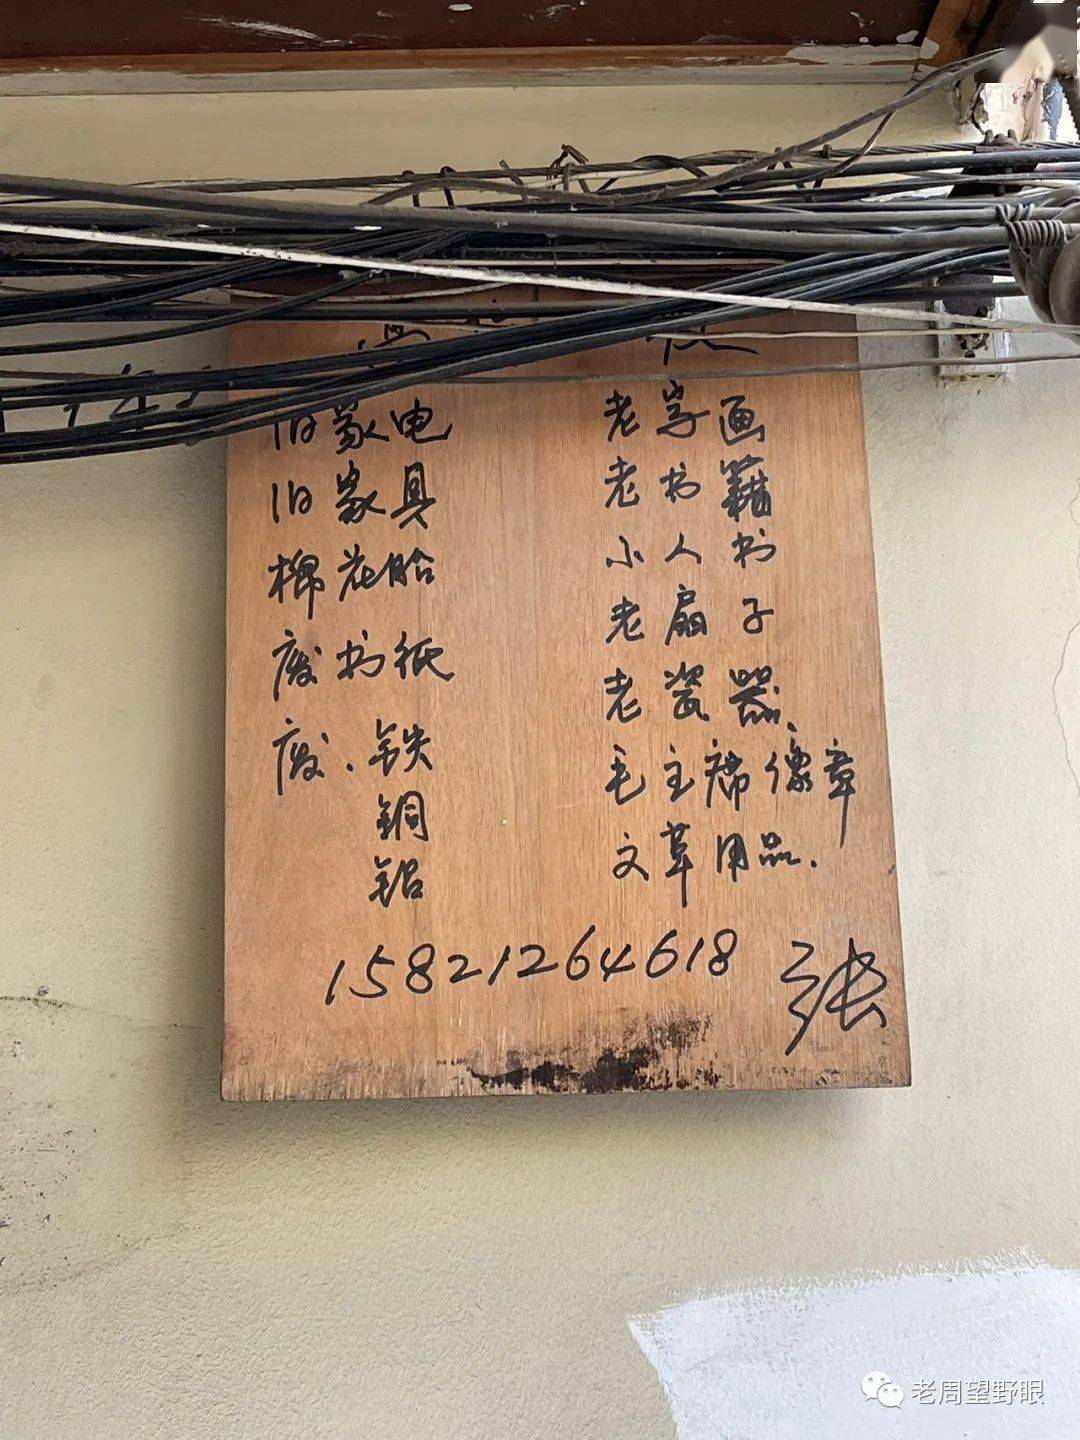 旧家电
旧家具
棉花胎
废书纸
废、铁
铜
铝
老字画
老书籍
小人书
老扇子
老瓷器、
毛主席像章
文革用品.
15821264618 张
老周望野眼